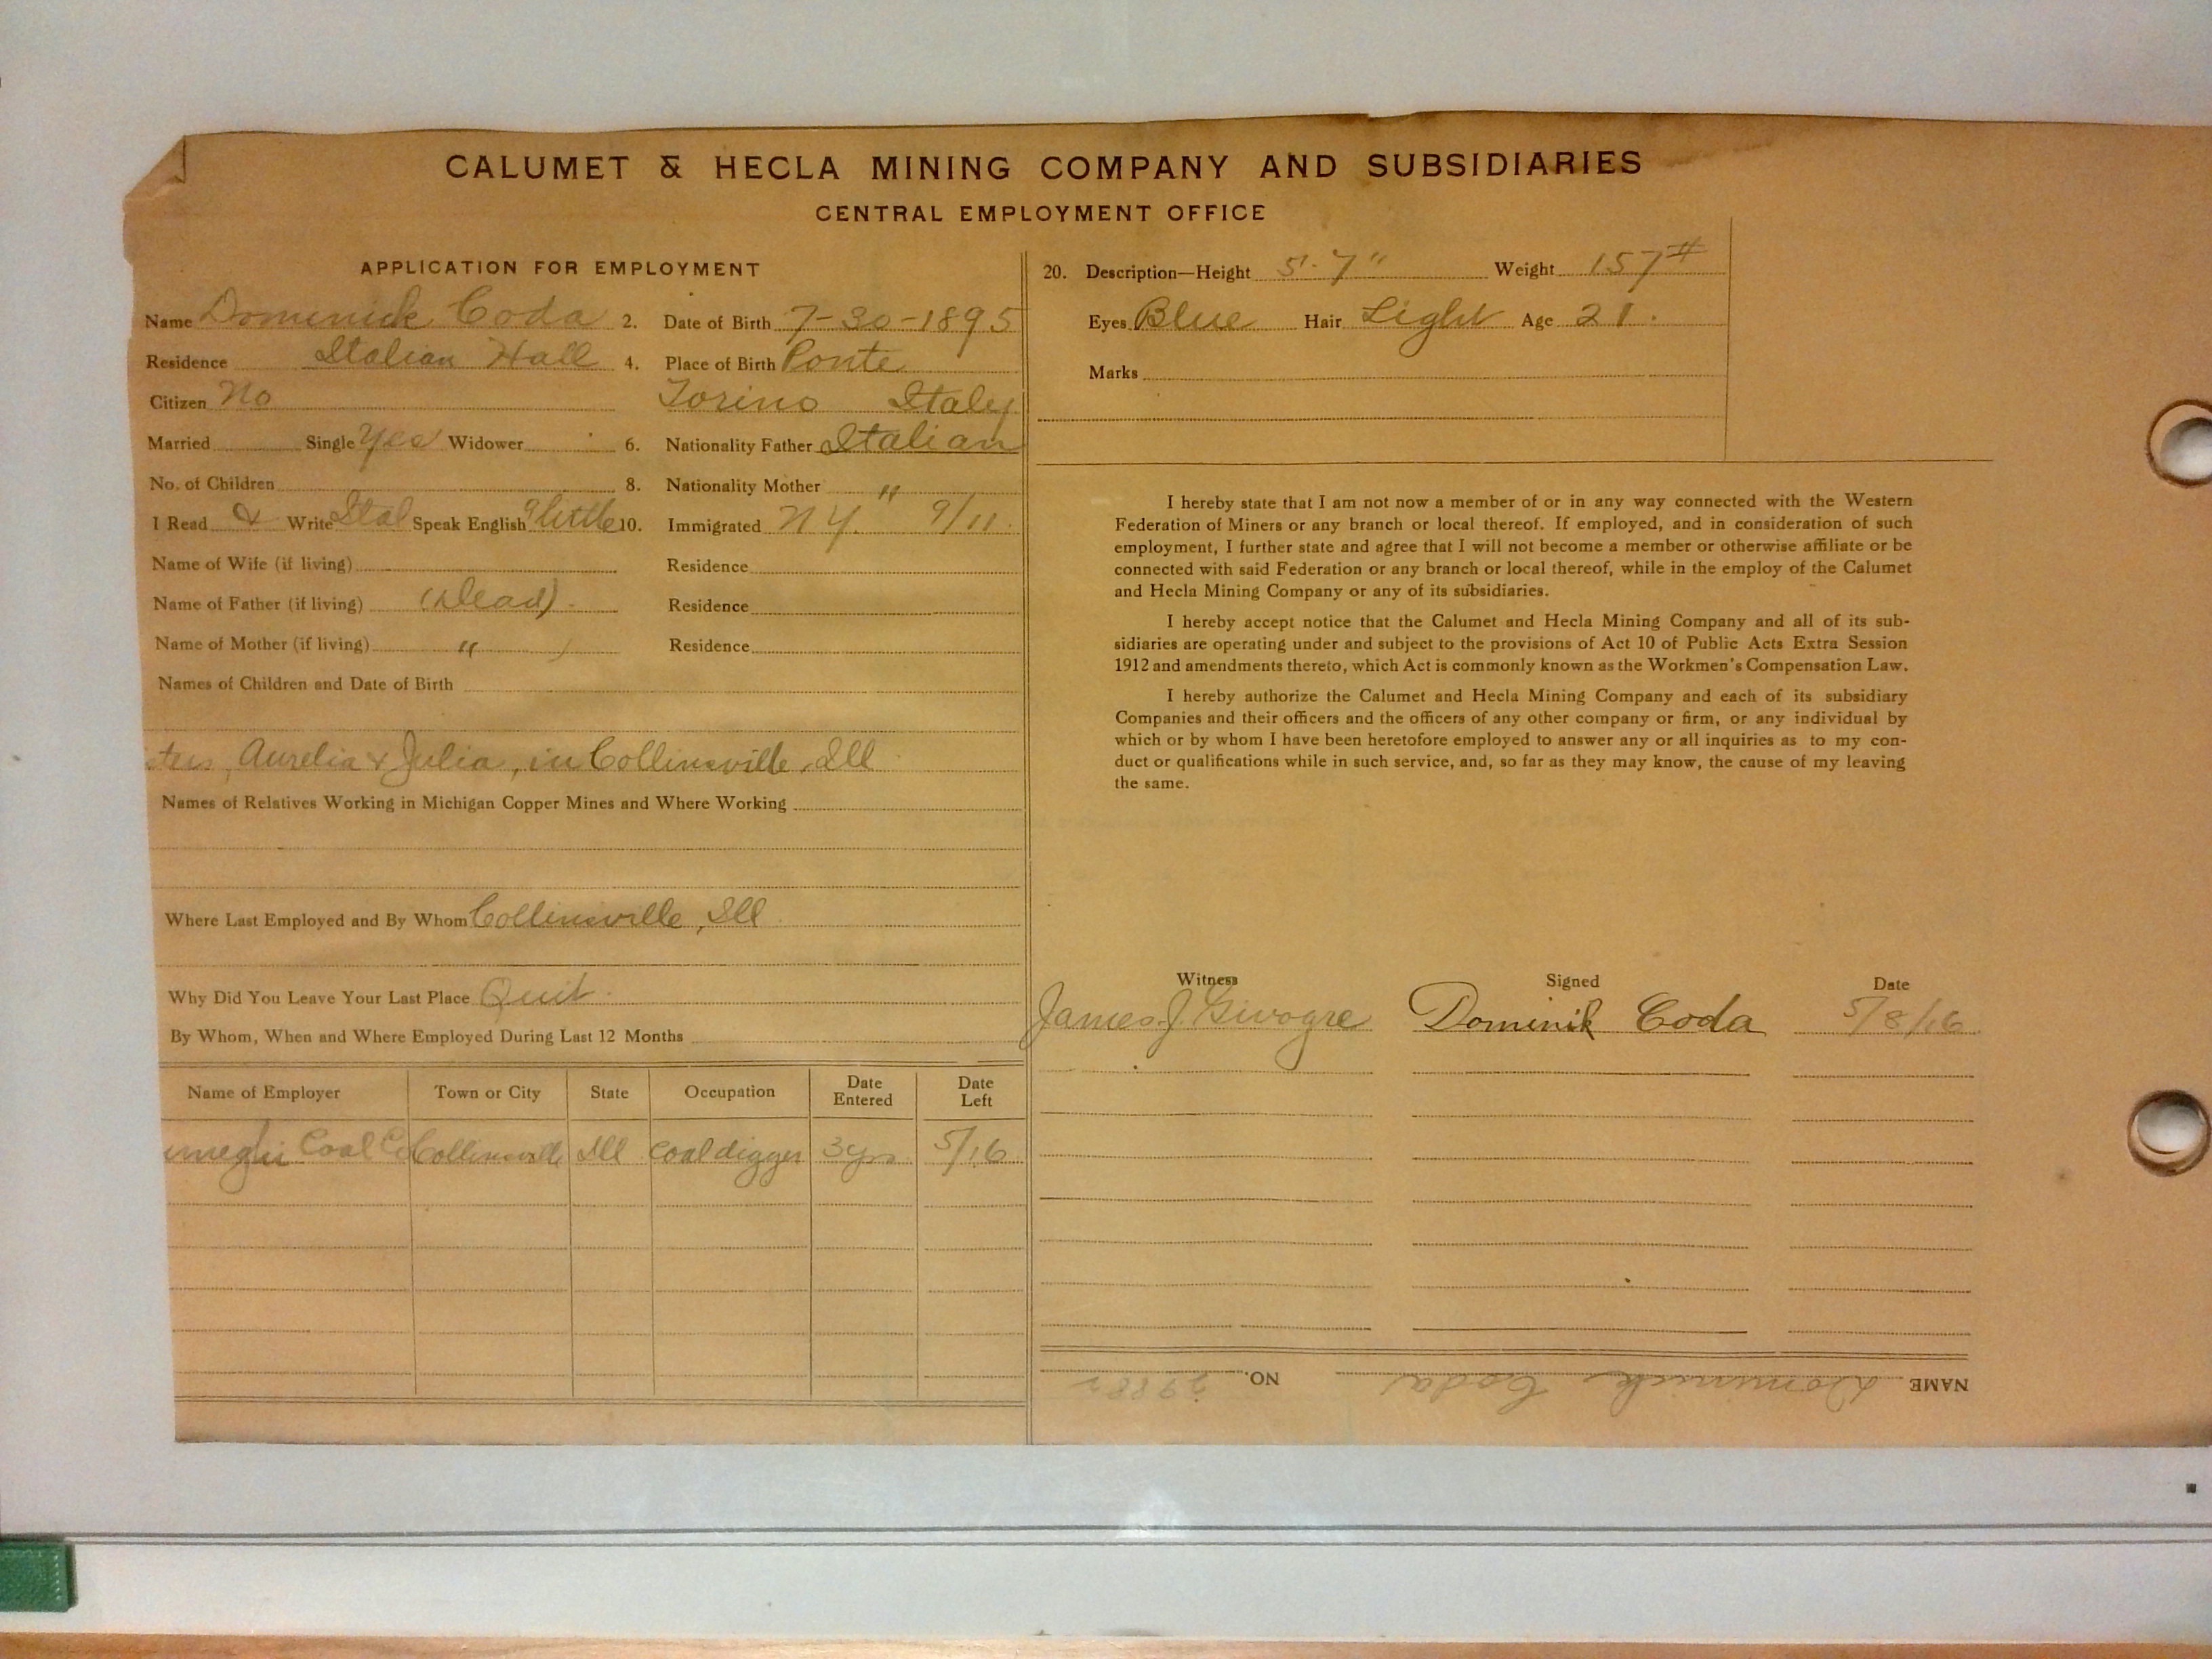 CALUMET & HECLA MINING COMPANY AND SUBSIDIARIES
CENTRAL EMPLOYMENT OFFICE
APPLICATION FOR EMPLOYMENT
Name Dominick Coda 2. Date of Birth 7-30-1895
Residence Italian Hall 4. Place of Birth Ponte
Citizen No Torino Italy
Married Single Yes Widower 6. Nationality Father Italian
No. of Children 8. Nationality Mother "
I Read & Write Ital Speak English little 10. Immigrated N.Y. 9/11.
Name of Wife (if living) Residence
Name of Father (if living) (Dead) Residence
Name of Mother (if living) " ) Residence
Names of Children and Date of Birth
ters, Aurelia & Julia, in Collinsville, Ill
Names of Relatives Working in Michigan Copper Mines and Where Working
Where Last Employed and By Whom Collinsville, Ill
Why Did You Leave Your Last Place Quit.
By Whom, When and Where Employed During Last 12 Months
Name of Employer Town or City State Occupation Date Entered Date Left
Coal Co Collinsville Ill Coal digger 3 yrs. 5/16
20. Description—Height 5' 7" Weight 157#
Eyes Blue Hair Light Age 21.
Marks
I hereby state that I am not now a member of or in any way connected with the Western
Federation of Miners or any branch or local thereof. If employed, and in consideration of such
employment, I further state and agree that I will not become a member or otherwise affiliate or be
connected with said Federation or any branch or local thereof, while in the employ of the Calumet
and Hecla Mining Company or any of its subsidiaries.
I hereby accept notice that the Calumet and Hecla Mining Company and all of its sub-
sidiaries are operating under and subject to the provisions of Act 10 of Public Acts Extra Session
1912 and amendments thereto, which Act is commonly known as the Workmen's Compensation Law.
I hereby authorize the Calumet and Hecla Mining Company and each of its subsidiary
Companies and their officers and the officers of any other company or firm, or any individual by
which or by whom I have been heretofore employed to answer any or all inquiries as to my con-
duct or qualifications while in such service, and, so far as they may know, the cause of my leaving
the same.
Witness Signed Date
James J. Dominik Coda 5/8/16
NAME Dominick Coda NO.